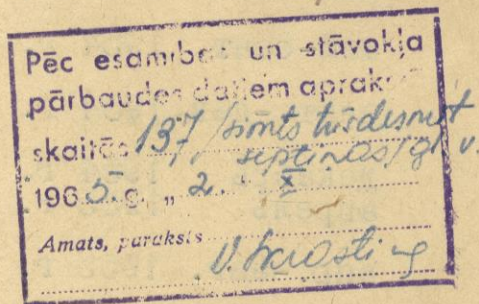 Pēc esamības un stāvokļa
pārbaudes datiem aprak
skaitās 137 /simts trīsdesmit
septiņas/ gl. v.
1965. g. „ 2. " X
Amats, paraksts